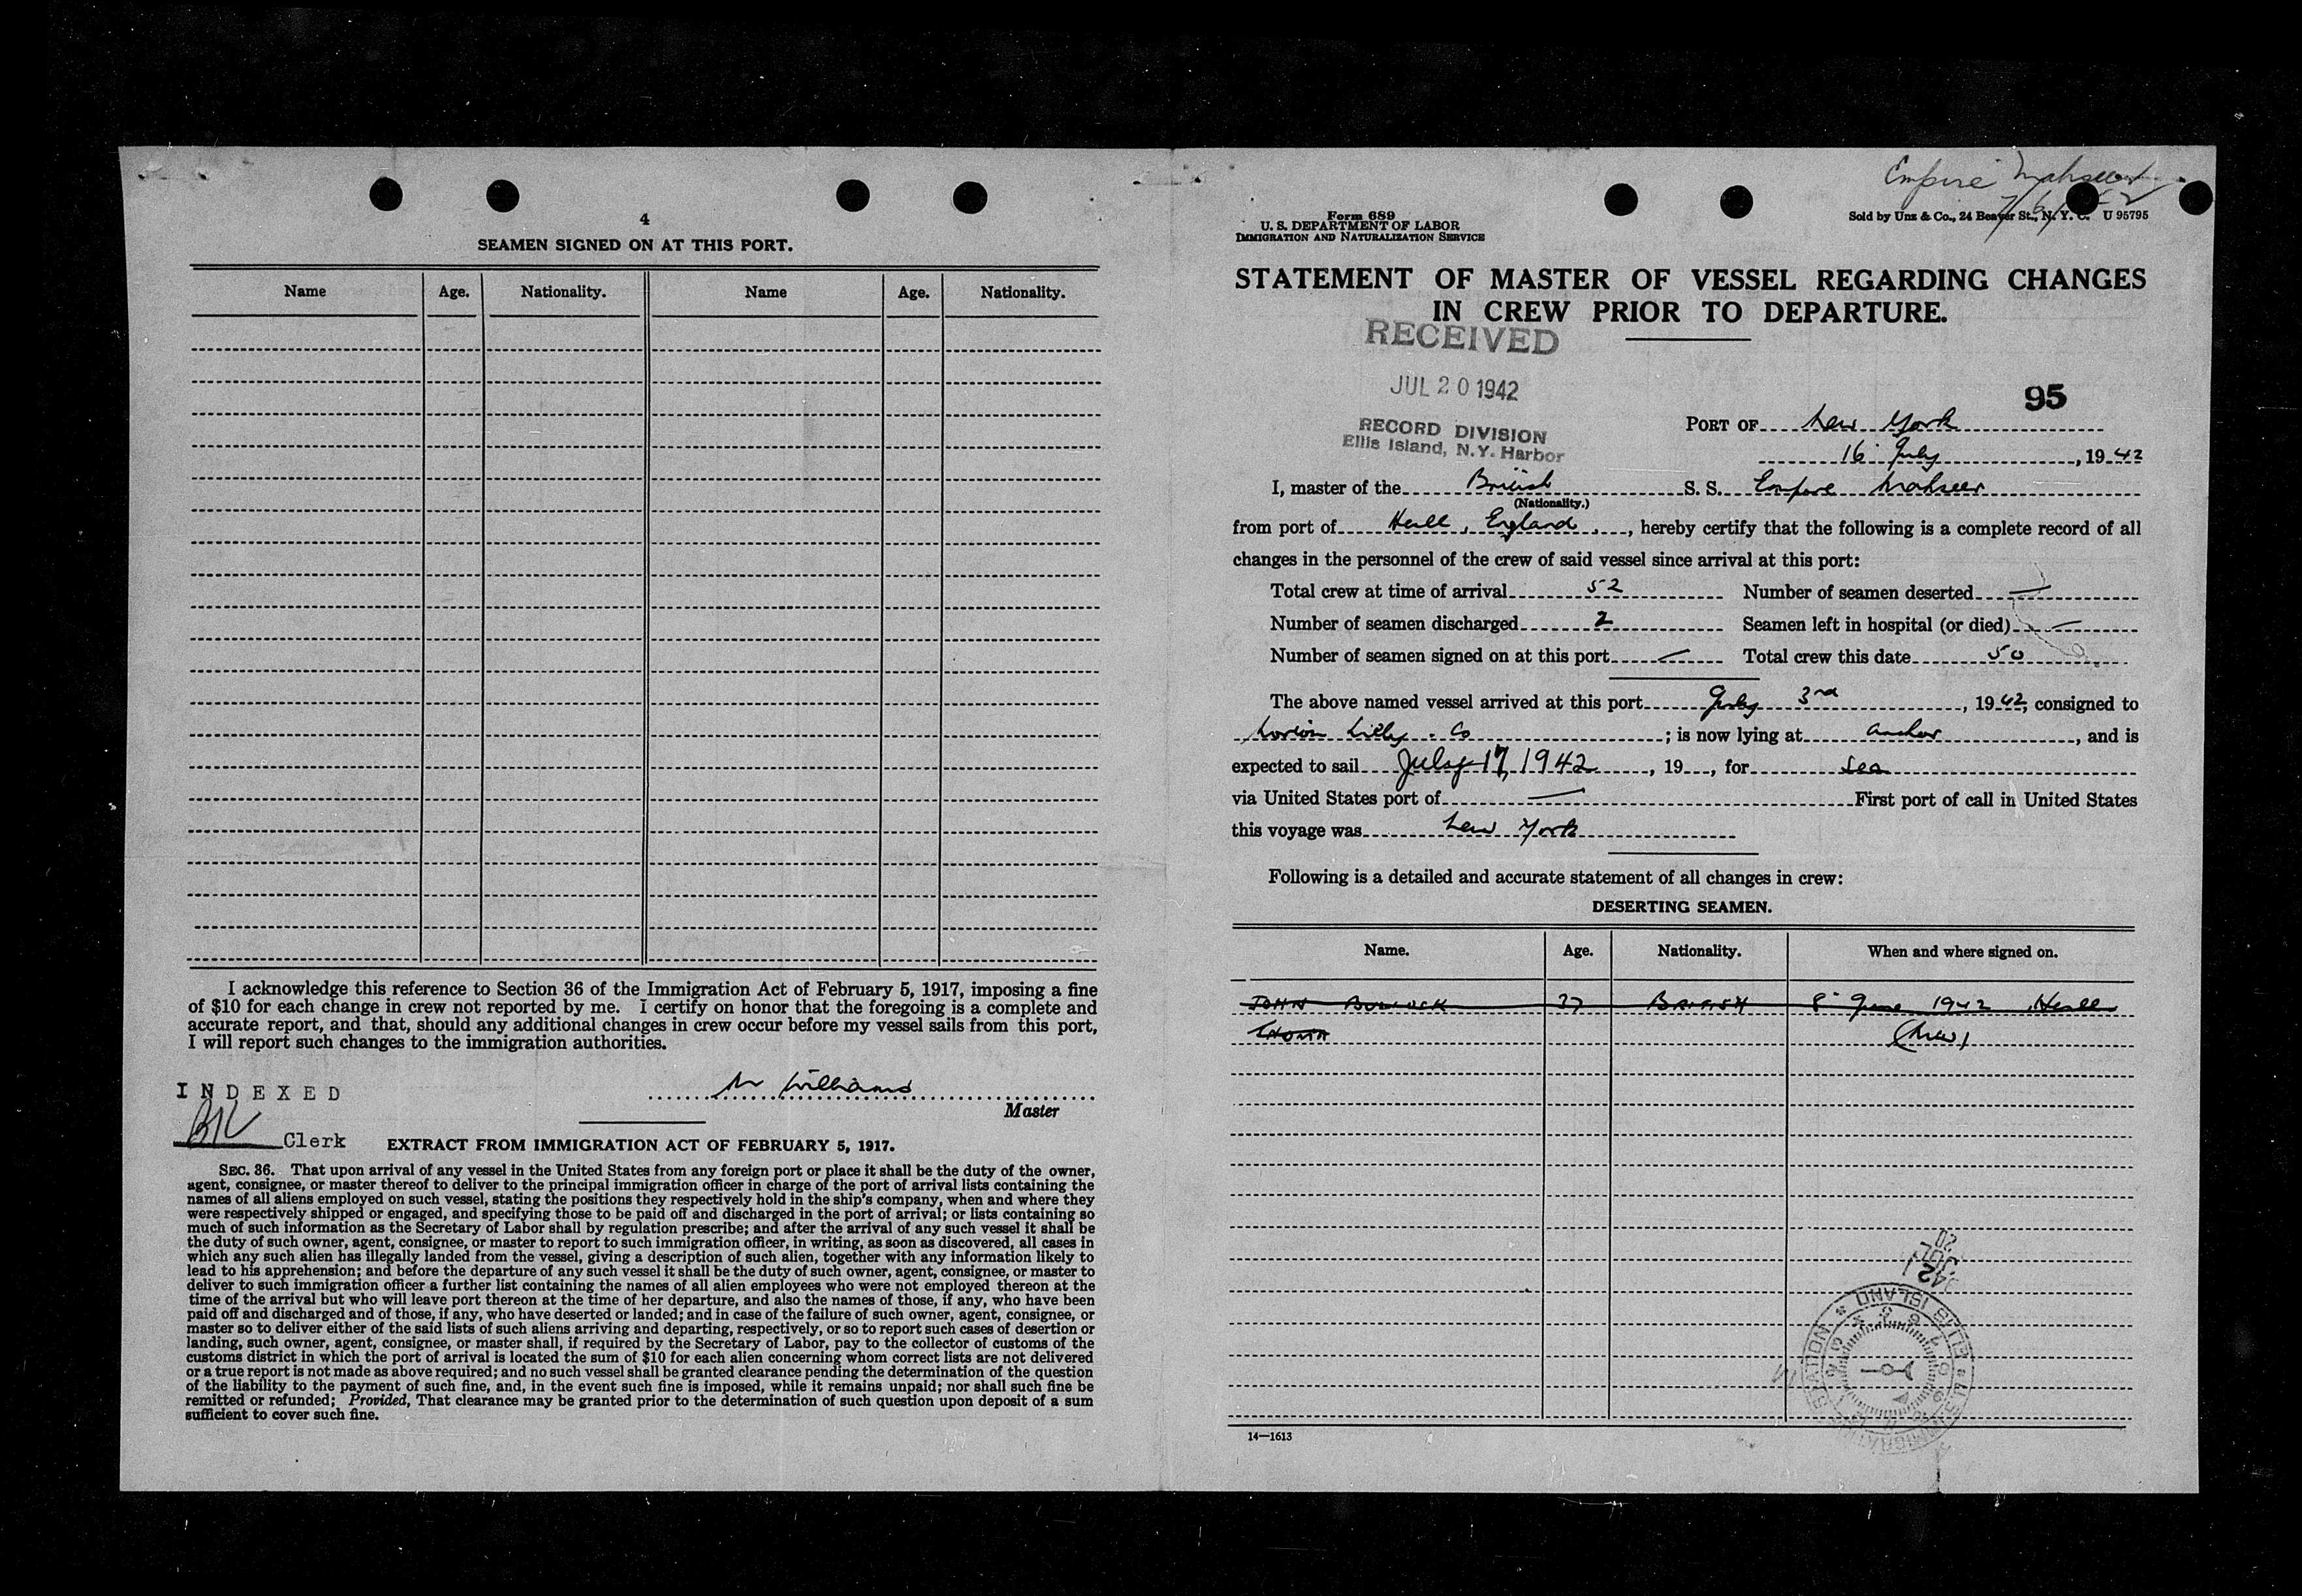 4
SEAMEN SIGNED ON AT THIS PORT.
Name Age. Nationality. Name Age. Nationality.
I acknowledge this reference to Section 36 of the Immigration Act of February 5, 1917, imposing a fine
of $10 for each change in crew not reported by me. I certify on honor that the foregoing is a complete and
accurate report, and that, should any additional changes in crew occur before my vessel sails from this port,
I will report such changes to the immigration authorities.
Williams
Master
INDEXED
Clerk
EXTRACT FROM IMMIGRATION ACT OF FEBRUARY 5, 1917.
SEC. 36. That upon arrival of any vessel in the United States from any foreign port or place it shall be the duty of the owner,
agent, consignee, or master thereof to deliver to the principal immigration officer in charge of the port of arrival lists containing the
names of all aliens employed on such vessel, stating the positions they respectively hold in the ship's company, when and where they
were respectively shipped or engaged, and specifying those to be paid off and discharged in the port of arrival; or lists containing so
much of such information as the Secretary of Labor shall by regulation prescribe; and after the arrival of any such vessel it shall be
the duty of such owner, agent, consignee, or master to report to such immigration officer, in writing, as soon as discovered, all cases in
which any such alien has illegally landed from the vessel, giving a description of such alien, together with any information likely to
lead to his apprehension; and before the departure of any such vessel it shall be the duty of such owner, agent, consignee, or master to
deliver to such immigration officer a further list containing the names of all alien employees who were not employed thereon at the
time of the arrival but who will leave port thereon at the time of her departure, and also the names of those, if any, who have been
paid off and discharged and of those, if any, who have deserted or landed; and in case of the failure of such owner, agent, consignee, or
master so to deliver either of the said lists of such aliens arriving and departing, respectively, or so to report such cases of desertion or
landing, such owner, agent, consignee, or master shall, if required by the Secretary of Labor, pay to the collector of customs of the
customs district in which the port of arrival is located the sum of $10 for each alien concerning whom correct lists are not delivered
or a true report is not made as above required; and no such vessel shall be granted clearance pending the determination of the question
of the liability to the payment of such fine, and, in the event such fine is imposed, while it remains unpaid; nor shall such fine be
remitted or refunded; Provided, That clearance may be granted prior to the determination of such question upon deposit of a sum
sufficient to cover such fine.
Empire Mahseer
Form 689
U. S. DEPARTMENT OF LABOR
IMMIGRATION AND NATURALIZATION SERVICE
Sold by Unz & Co., 24 Beaver St., N. Y. C. U 95795
STATEMENT OF MASTER OF VESSEL REGARDING CHANGES
IN CREW PRIOR TO DEPARTURE.
RECEIVED
JUL 20 1942
RECORD DIVISION
Ellis Island, N.Y. Harbor
95
PORT OF New York
16 July, 1942
I, master of the British S. S. Empire Mahseer
(Nationality.)
from port of Hull, England, hereby certify that the following is a complete record of all
changes in the personnel of the crew of said vessel since arrival at this port:
Total crew at time of arrival 52 Number of seamen deserted —
Number of seamen discharged 2 Seamen left in hospital (or died) —
Number of seamen signed on at this port — Total crew this date 50
The above named vessel arrived at this port July 3rd, 1942, consigned to
Norton Lilly & Co; is now lying at anchor, and is
expected to sail July 17, 1942, 19, for Sea
via United States port of — First port of call in United States
this voyage was New York
Following is a detailed and accurate statement of all changes in crew:
DESERTING SEAMEN.
Name. Age. Nationality. When and where signed on.
JOHN BULLOCK 27 BRITISH 8 June 1942 Hull
14—1613
JUL 20
ELLIS ISLAND